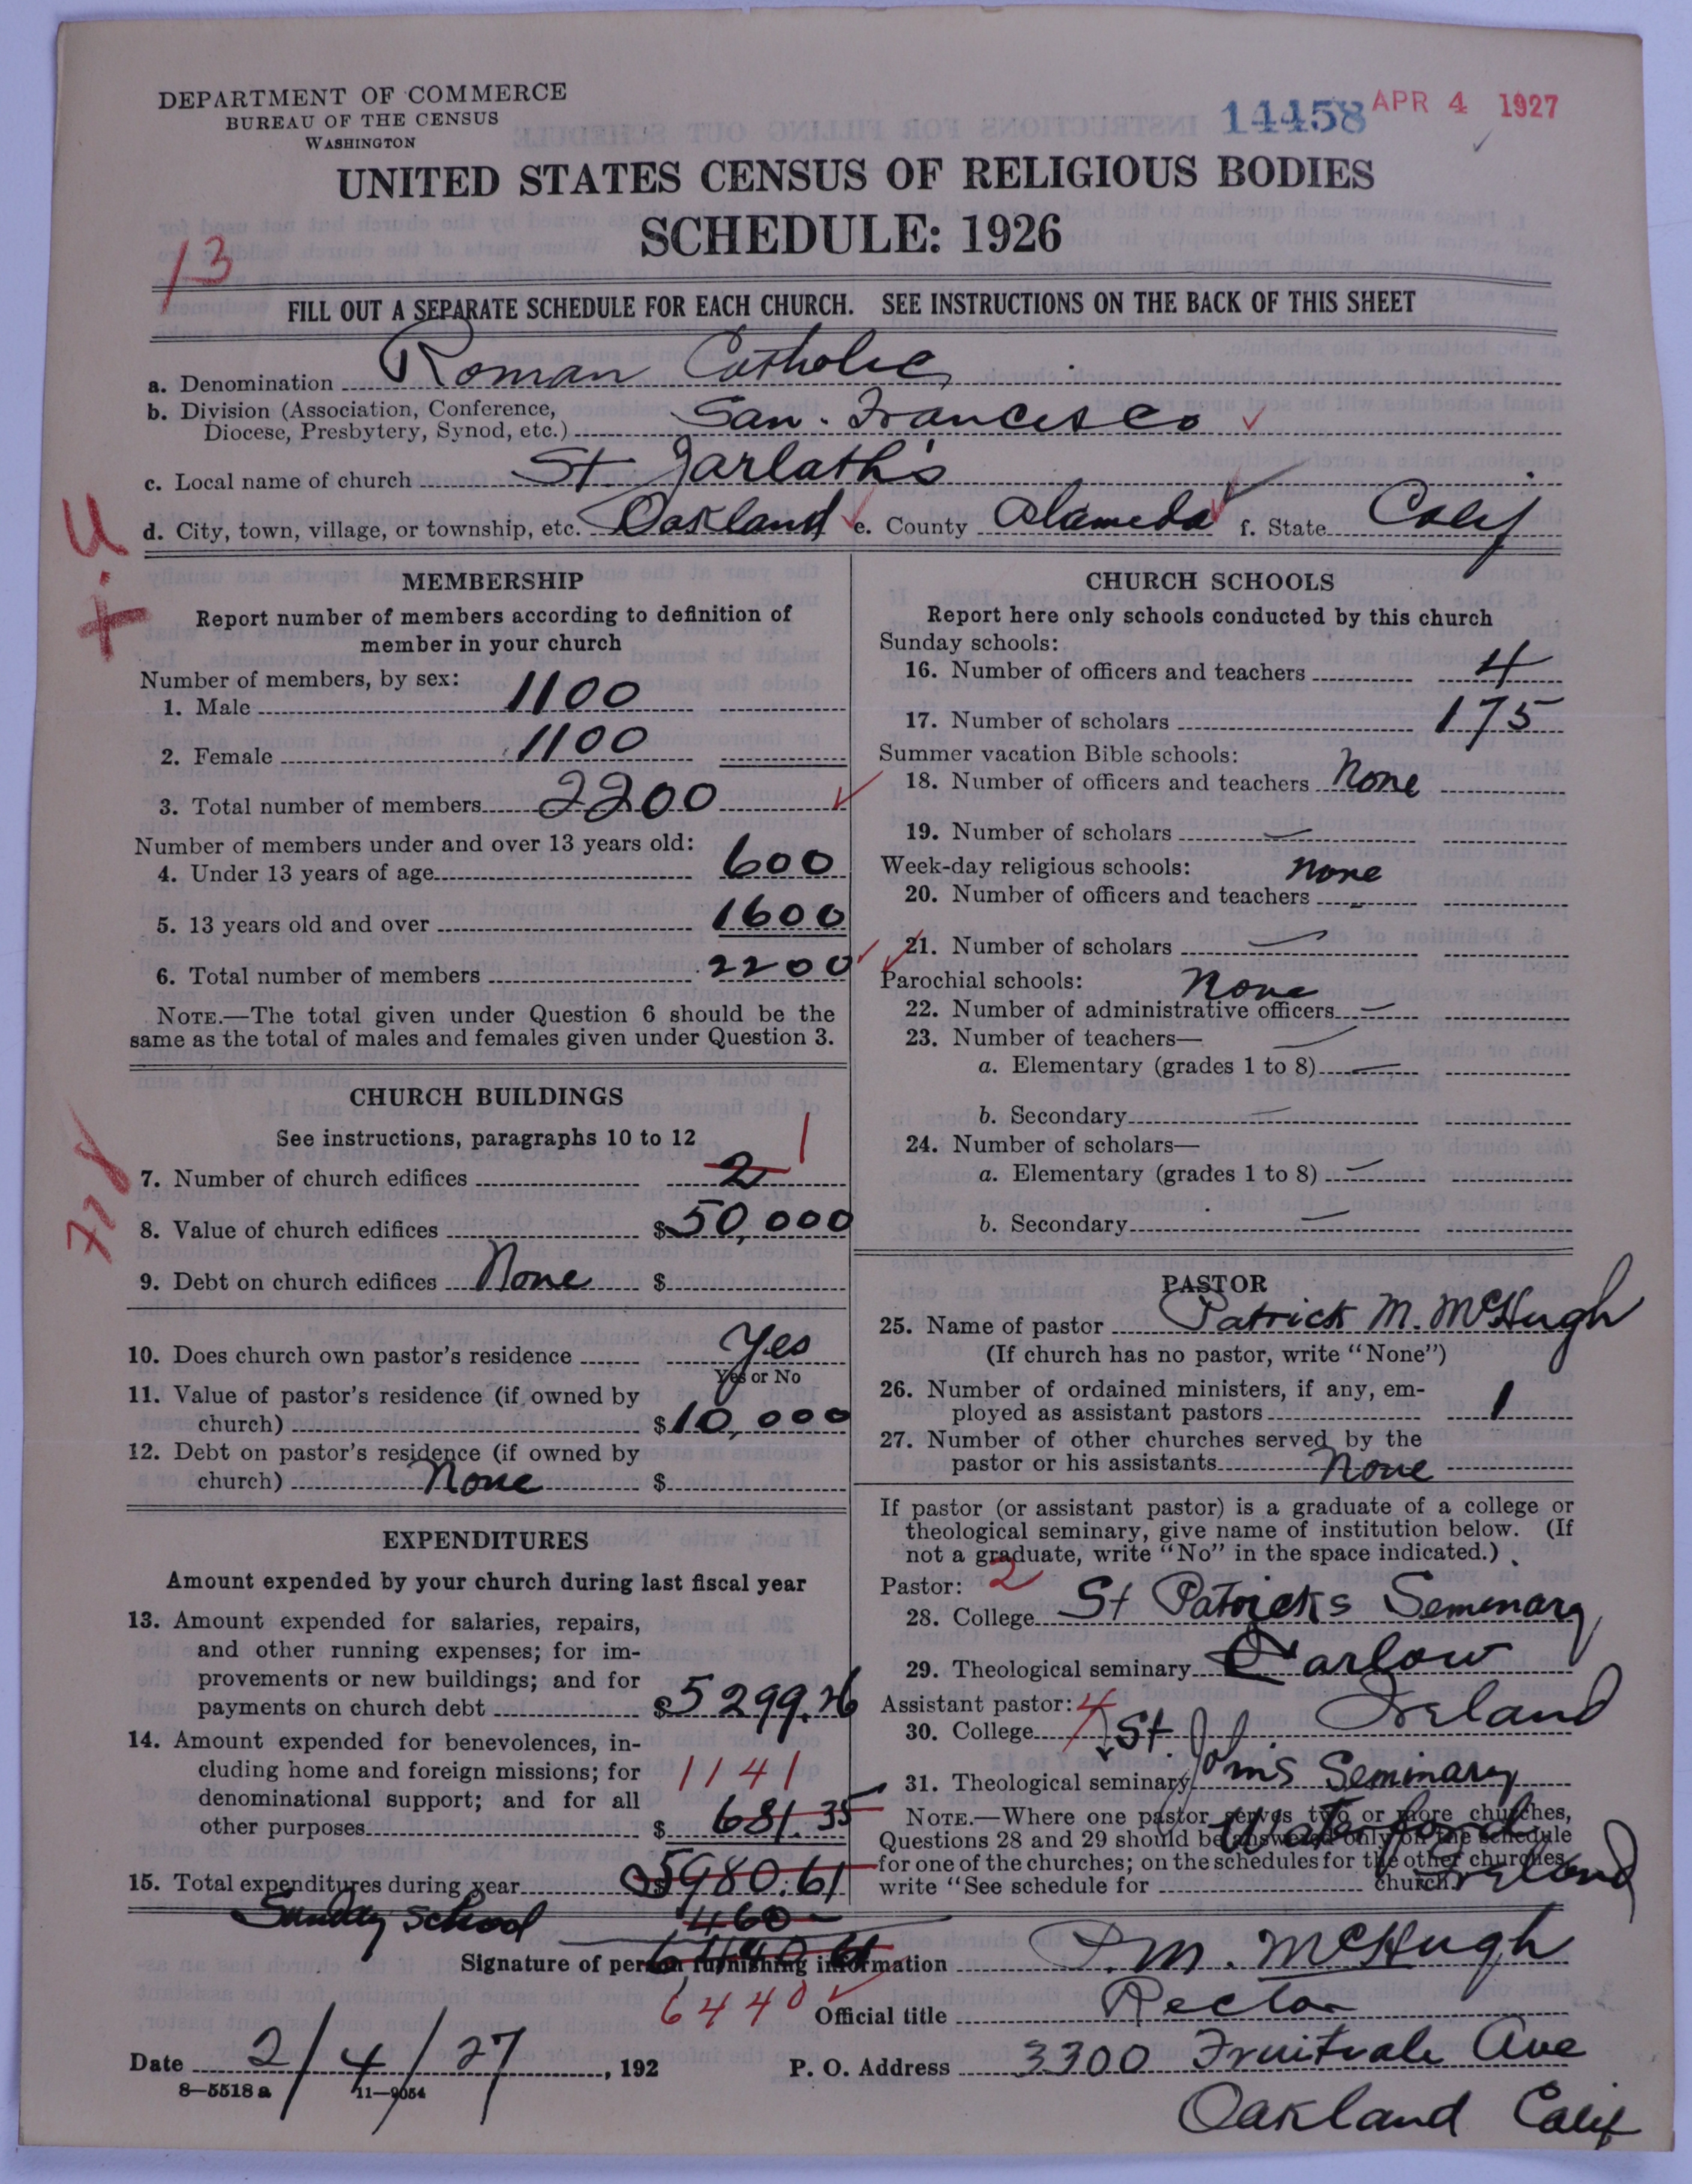 DEPARTMENT OF COMMERCE
BUREAU OF THE CENSUS
WASHINGTON
14458 APR 4 1927
UNITED STATES CENSUS OF RELIGIOUS BODIES
SCHEDULE: 1926
13
FILL OUT A SEPARATE SCHEDULE FOR EACH CHURCH. SEE INSTRUCTIONS ON THE BACK OF THIS SHEET
a. Denomination Roman Catholic
b. Division (Association, Conference,
Diocese, Presbytery, Synod, etc.) San. Francisco
c. Local name of church St Jarlath's
d. City, town, village, or township, etc. Oakland e. County Alameda f. State Calif
MEMBERSHIP
Report number of members according to definition of
member in your church
Number of members, by sex:
1. Male 1100
2. Female 1100
3. Total number of members 2200
Number of members under and over 13 years old:
4. Under 13 years of age 600
5. 13 years old and over 1600
6. Total number of members 2200
NOTE.—The total given under Question 6 should be the
same as the total of males and females given under Question 3.
CHURCH BUILDINGS
See instructions, paragraphs 10 to 12
7. Number of church edifices 2 1
8. Value of church edifices $50,000
9. Debt on church edifices None $
10. Does church own pastor's residence Yes
Yes or No
11. Value of pastor's residence (if owned by
church) $10,000
12. Debt on pastor's residence (if owned by
church) None $
EXPENDITURES
Amount expended by your church during last fiscal year
13. Amount expended for salaries, repairs,
and other running expenses; for im-
provements or new buildings; and for
payments on church debt $5299.26
14. Amount expended for benevolences, in-
cluding home and foreign missions; for 1141
denominational support; and for all
other purposes $ 681.35
15. Total expenditures during year $5980.61
Sunday School 460-
CHURCH SCHOOLS
Report here only schools conducted by this church
Sunday schools:
16. Number of officers and teachers 4
17. Number of scholars 175
Summer vacation Bible schools:
18. Number of officers and teachers None
19. Number of scholars —
Week-day religious schools: none
20. Number of officers and teachers
21. Number of scholars —
Parochial schools: None
22. Number of administrative officers —
23. Number of teachers— —
a. Elementary (grades 1 to 8) —
b. Secondary —
24. Number of scholars—
a. Elementary (grades 1 to 8) —
b. Secondary —
PASTOR
25. Name of pastor Patrick M. McHugh
(If church has no pastor, write "None")
26. Number of ordained ministers, if any, em-
ployed as assistant pastors 1
27. Number of other churches served by the
pastor or his assistants None
If pastor (or assistant pastor) is a graduate of a college or
theological seminary, give name of institution below. (If
not a graduate, write "No" in the space indicated.)
Pastor: 2
28. College St Patricks Seminary
29. Theological seminary Carlow
Assistant pastor: 4 Ireland
30. College St. Johns Seminary
31. Theological seminary
NOTE.—Where one pastor serves two or more churches,
Waterford
Questions 28 and 29 should be answered only on the schedule
for one of the churches; on the schedules for the other churches,
Ireland
write "See schedule for church."
Signature of person furnishing information P. M. McHugh
6440
Official title Rector
Date 2/4/27, 192 P. O. Address 3300 Fruitvale Ave
8—5518 a 11—9054
Oakland Calif